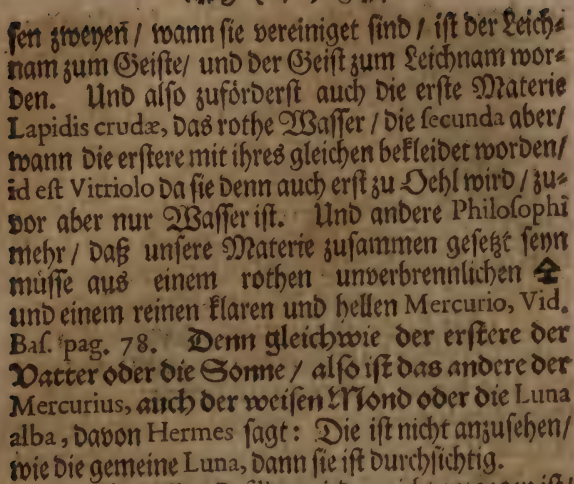 sen zweyen / wann sie vereiniget sind / ist der Leich⸗
nam zum Geiste/ und der Geist zum Leichnam wor⸗
den. Und also zuförderst auch die erste Materie
Lapidis crudæ, das rothe Wasser / die secunda aber/
wann die erstere mit ihres gleichen bekleidet worden/
id est Vitriolo da sie denn auch erst zu Oehl wird / zu⸗
vor aber nur Wasser ist. Und andere Philosophi
mehr / daß unsere Materie zusammen gesetzt seyn
müsse aus einem rothen unverbrennlichen 🜍
und einem reinen klaren und hellen Mercurio, Vid.
Bas. pag. 78. Denn gleichwie der erstere der
Vatter oder die Sonne / also ist das andere der
Mercurius, auch der weisen Mond oder die Luna
alba, davon Hermes sagt: Die ist nicht anzusehen/
wie die gemeine Luna, dann sie ist durchsichtig.